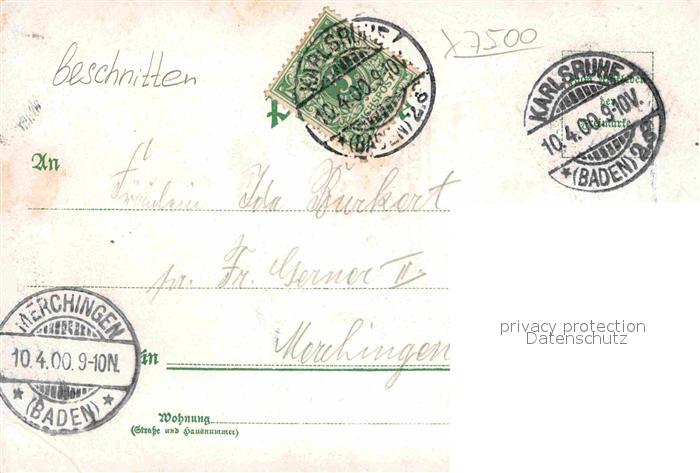 beschnitten
X7500
KARLSRUHE 1
10.4.00.9-10V.
*(BADEN) 2.g
KARLSRUHE 1
10.4.00.9-10V.
*(BADEN) 2.g
An
Fräulein Ida Burkert
pr. Fr. Gerner II
MERCHINGEN
10.4.00.9-10N.
* (BADEN) *
in Merchingen
Wohnung
(Straße und Hausnummer)
privacy protection
Datenschutz